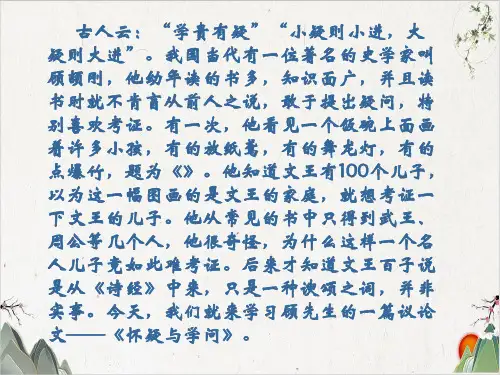 古人云：“学贵有疑”“小疑则小进，大
疑则大进”。我国当代有一位著名的史学家叫
顾颉刚，他幼年读的书多，知识面广，并且读
书时就不肯盲从前人之说，敢于提出疑问，特
别喜欢考证。有一次，他看见一个饭碗上面画
着许多小孩，有的放纸鸢，有的舞龙灯，有的
点爆竹，题为《》。他知道文王有100个儿子，
以为这一幅图画的是文王的家庭，就想考证一
下文王的儿子。他从常见的书中只得到武王、
周公等几个人，他很奇怪，为什么这样一个名
人儿子竟如此难考证。后来才知道文王百子说
是从《诗经》中来，只是一种谀颂之词，并非
实事。今天，我们就来学习顾先生的一篇议论
文——《怀疑与学问》。